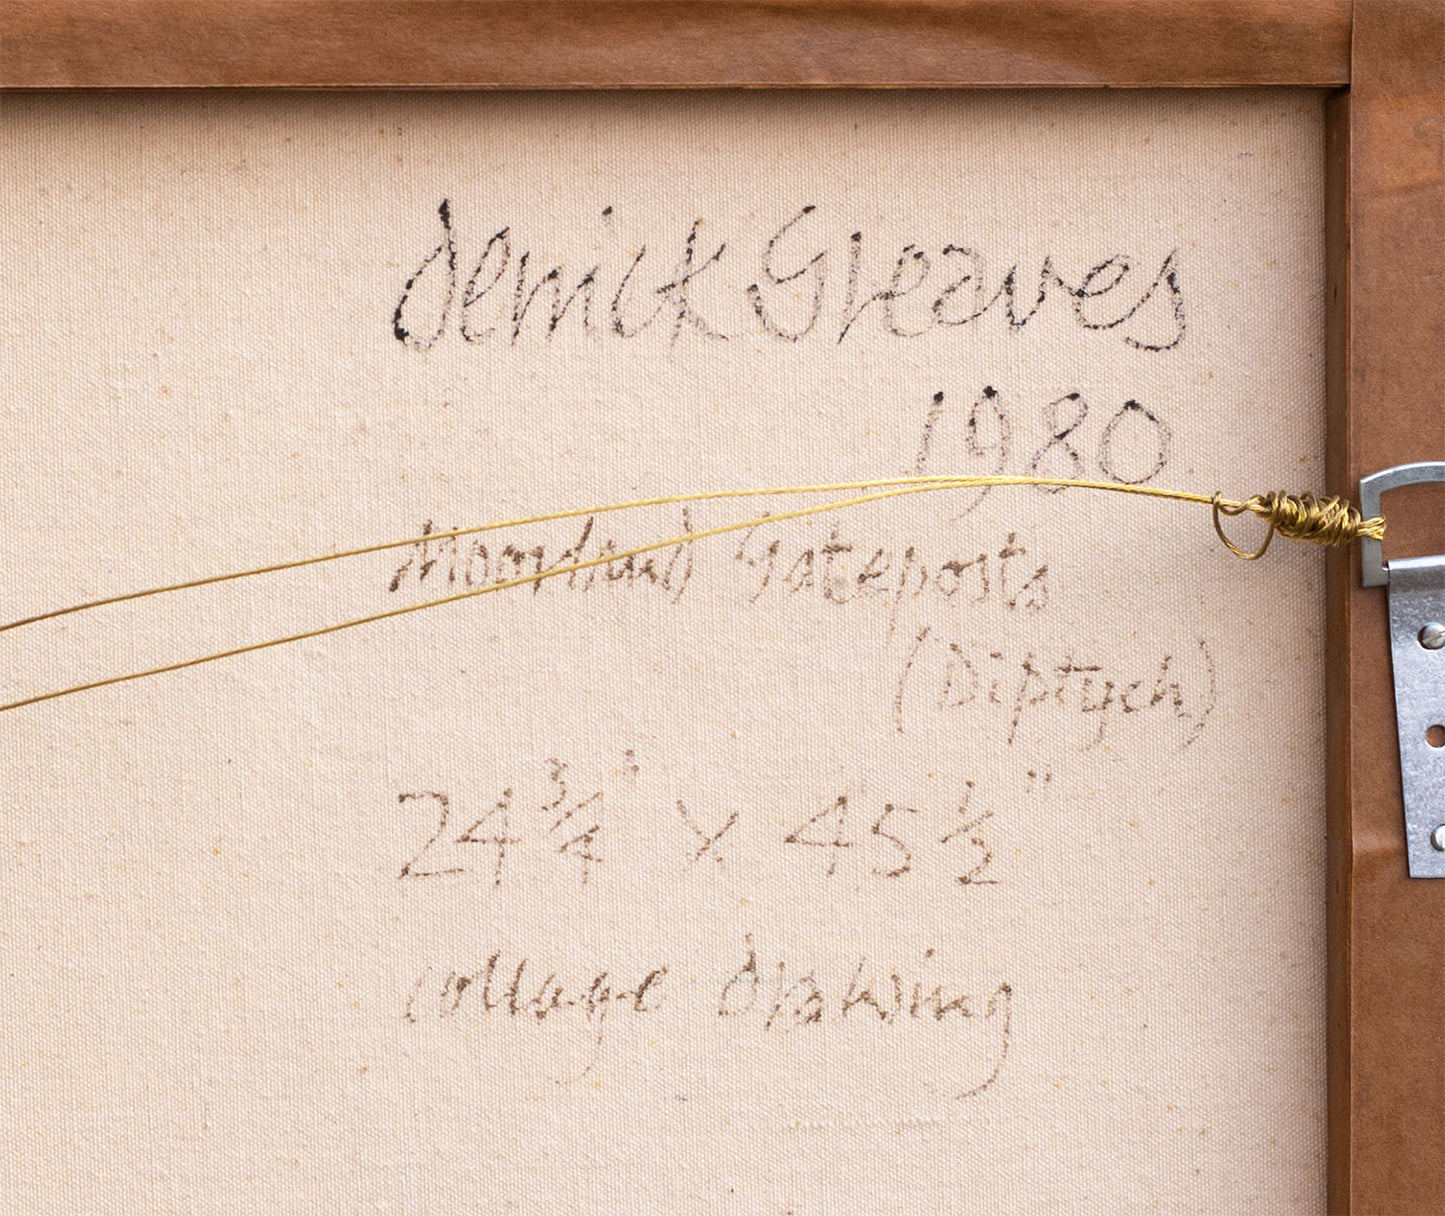 Derrick Greaves
1980.
Moorland Gateposts
(Diptych)
24 3/4" x 45 1/2"
collage drawing